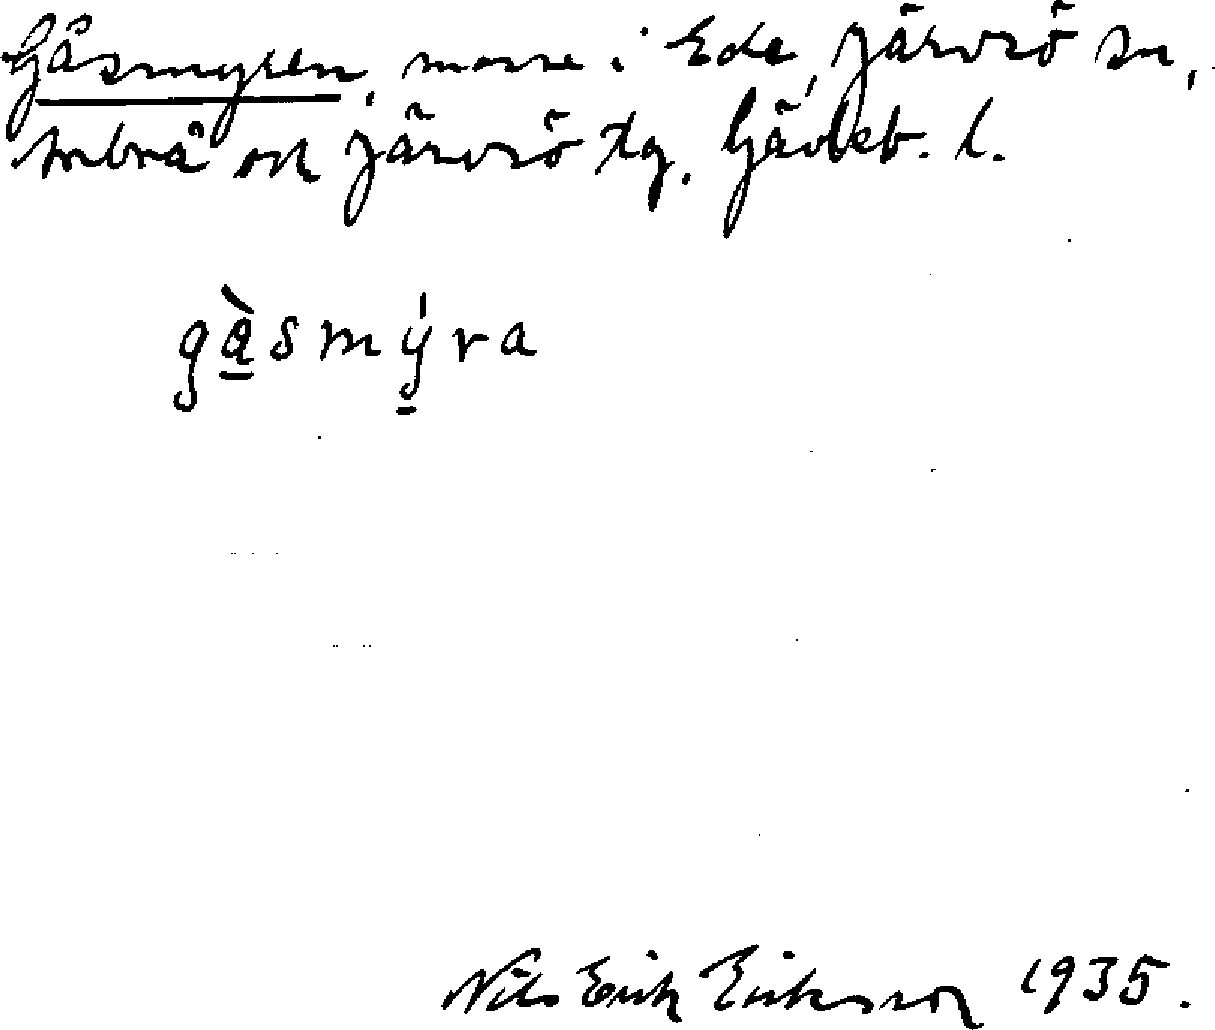 Gåsmyren, mosse i Ede, Järvsö sn,
Arbrå och Järvsö tg. Gävleb. l.
gå̀smýra
Nils Erik Eriksson 1935.